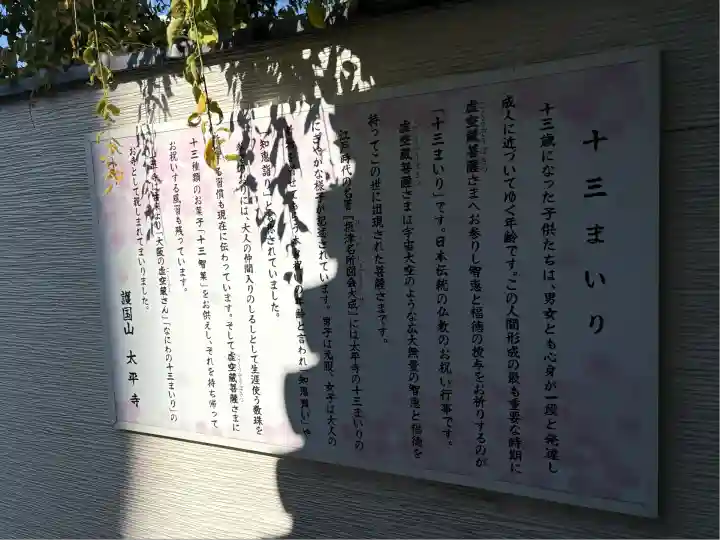 十三まいり
十三歳になった子供たちは、男女とも心身が一段と発達し
成人に近づいてゆく年齢です。この人間形成の最も重要な時期に
虚空蔵菩薩さまへお参りし智恵と福徳の授与をお祈りするのが
「十三まいり」です。日本伝統の仏教のお祝い行事です。
虚空蔵菩薩さまは宇宙大空のような広大無量の智恵と福徳を
持ってこの世に出現された菩薩さまです。
江戸時代の名著「摂津名所図会大成」には太平寺の十三まいりの
にぎやかな様子が記述されています。男子は元服、女子は大人の
年齢と言われ「知恵貰い」や
「知恵詣り」と
いました。
には、大人の仲間入りのしるしとして生涯使う数珠を
る習慣も現在に伝わっています。そして虚空蔵菩薩さまに
十三種類のお菓子「十三智菓」をお供えし、それを持ち帰って
お祝いする風習も残っています。
より「大阪の虚空蔵さん」「なにわの十三まいり」の
お寺として親しまれてまいりました。
護国山 太平寺